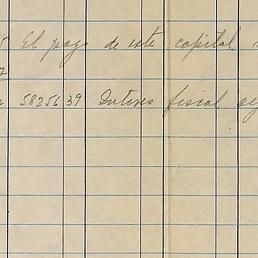 El pago de este capital
5825639 Interes fiscal